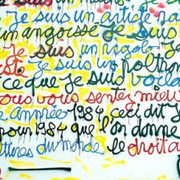 je suis un artiste ra
un angoisse je suis
je suis un rigolo je
est. je suis un poltron
ce que je suis voila
vous vous sentez mieu
e année 1984 ceci dit je
pour 1984 que l'on donne
ltures du monde le droit a